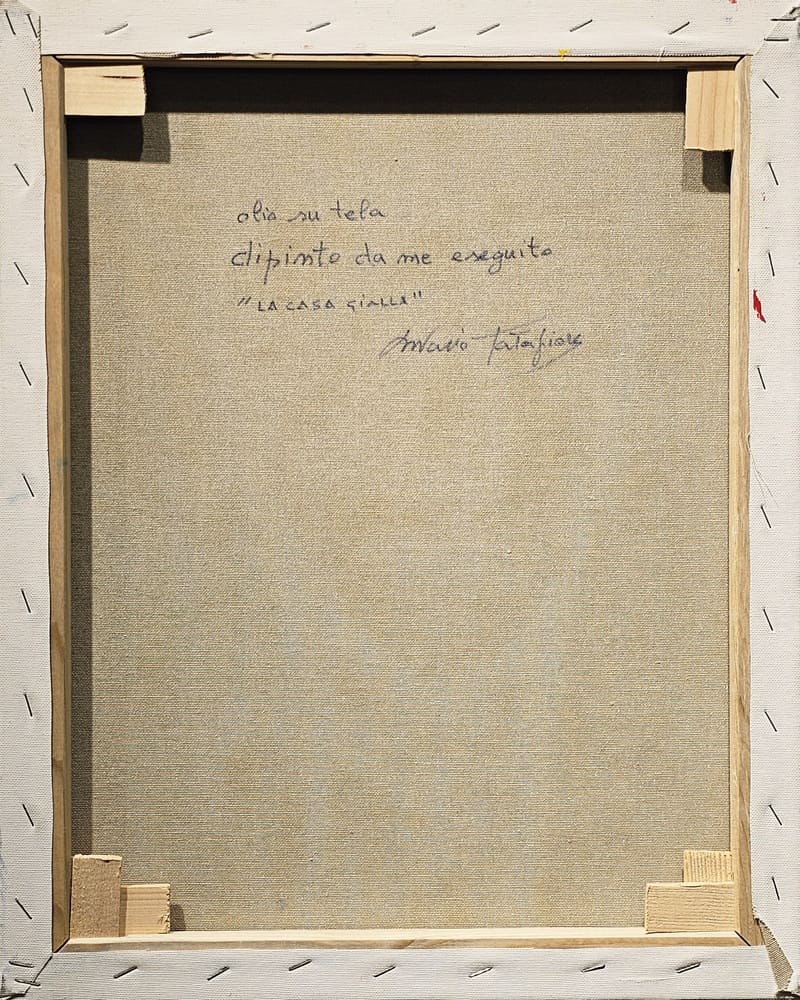 olio su tela
dipinto da me eseguito
"LA CASA GIALLA"
Tatafiore